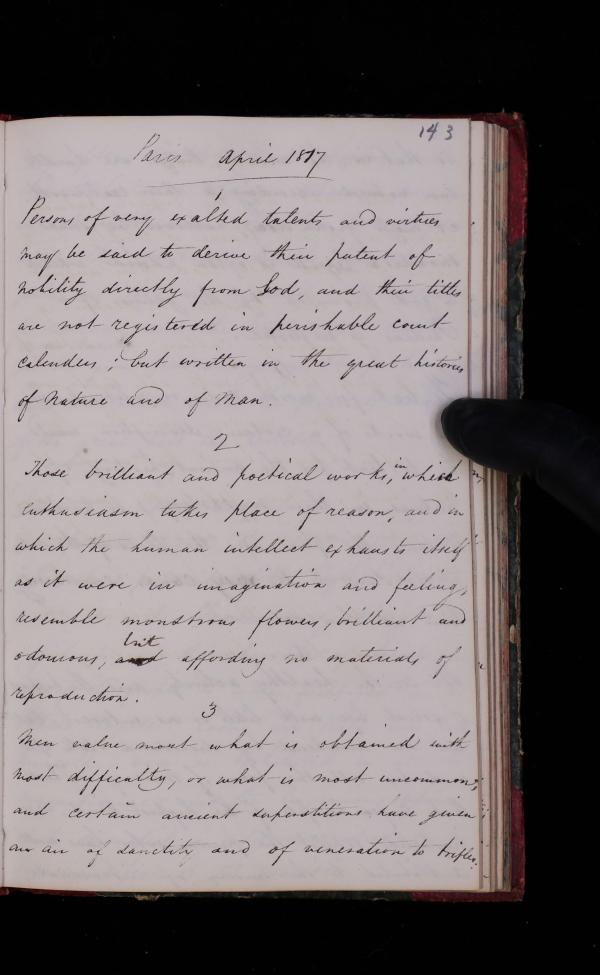 143
Paris April 1817
1
Persons of very exalted talents and virtues
may be said to derive their patent of
nobility directly from God, and their titles
are not registered in perishable court
calenders; but written in the great histories
of Nature and of Man.
2
Those brilliant and poetical works, in which
enthusiasm takes place of reason, and in
which the human intellect exhausts itself
as it were in imagination and feeling,
resemble monstrous flowers, brilliant and
odourous, and but affording no materials of
reproduction.
3
Men value most what is obtained with
most difficulty, or what is most uncommon;
and certain ancient superstitions have given
an air of sanctity and of veneration to trifles.